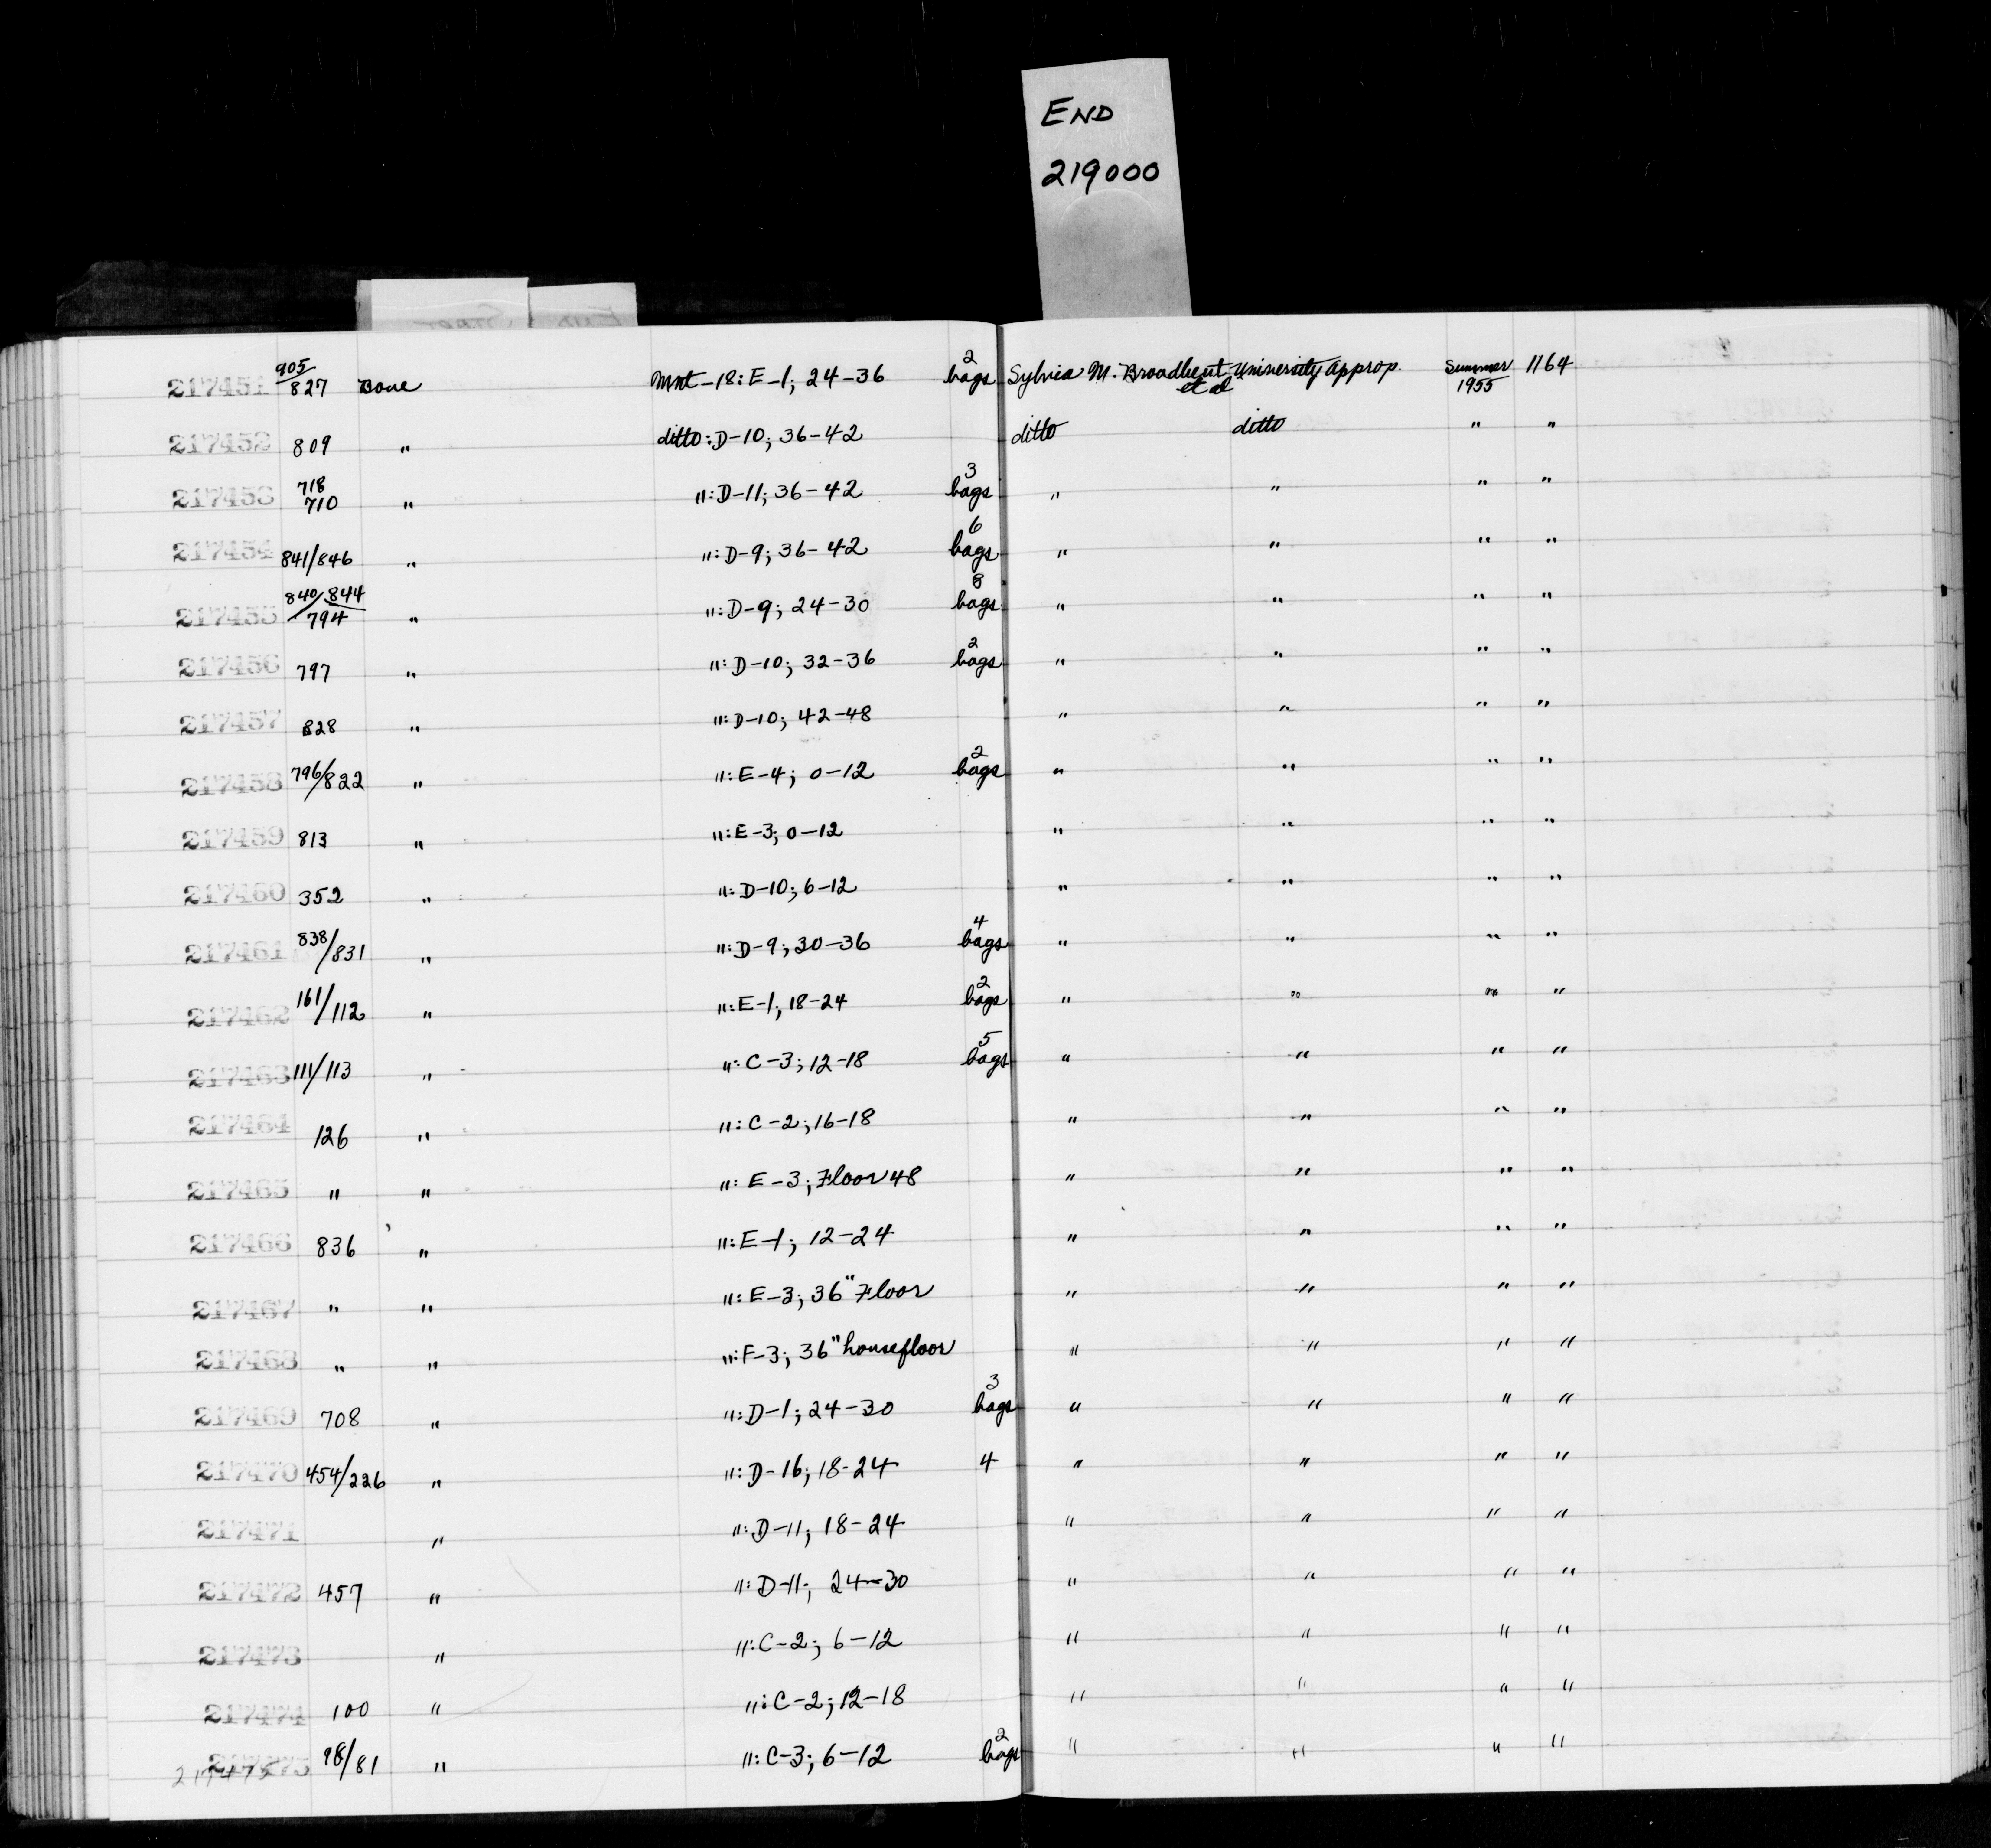 END
219000
217451 905/827 Bone Mnt-18: E-1; 24-36 2 bags Sylvia M. Broadbent et al University Approp. Summer 1955 1164
217452 809 " ditto: D-10; 36-42 ditto ditto " "
217453 718 710 " ": D-11; 36-42 3 bags " " " "
217454 841/846 " ": D-9; 36-42 6 bags " " " "
217455 840/844 794 " ": D-9; 24-30 8 bags " " " "
217456 797 " ": D-10; 32-36 2 bags " " " "
217457 828 " ": D-10; 42-48 " " " "
217458 796/822 " ": E-4; 0-12 2 bags " " " "
217459 813 " ": E-3; 0-12 " " " "
217460 352 " ": D-10; 6-12 " " " "
217461 838/831 " ": D-9; 30-36 4 bags " " " "
217462 161/112 " ": E-1; 18-24 2 bags " " " "
217463 111/113 " ": C-3; 12-18 5 bags " " " "
217464 126 " ": C-2; 16-18 " " " "
217465 " " ": E-3; Floor 48 " " " "
217466 836 " ": E-1; 12-24 " " " "
217467 " " ": E-3; 36" Floor " " " "
217468 " " ": F-3; 36" housefloor " " " "
217469 708 " ": D-1; 24-30 3 bags " " " "
217470 454/226 " ": D-16; 18-24 4 " " " "
217471 " ": D-11; 18-24 " " " "
217472 457 " ": D-11; 24-30 " " " "
217473 " ": C-2; 6-12 " " " "
217474 100 " ": C-2; 12-18 " " " "
217475 98/81 " ": C-3; 6-12 2 bags " " " "